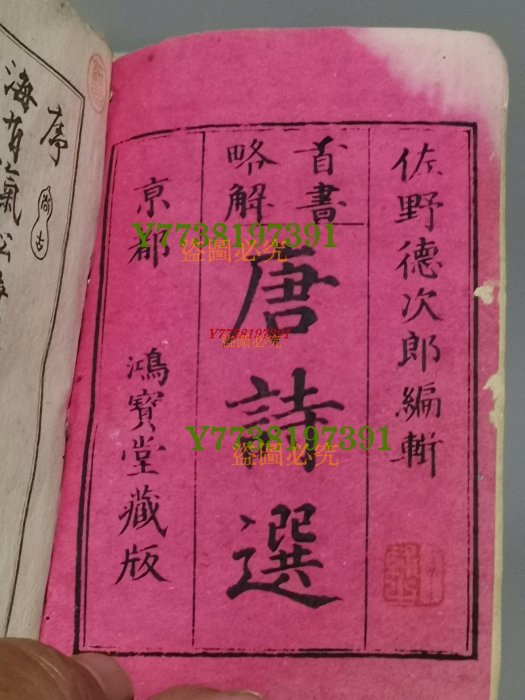 佐野德次郎編輯
首書
略解
唐詩選
京都
鴻寶堂藏版
序
海有氣
Y7738197391
盜圖必究
Y7738197391
盜圖必究
Y7738197391
盜圖必究